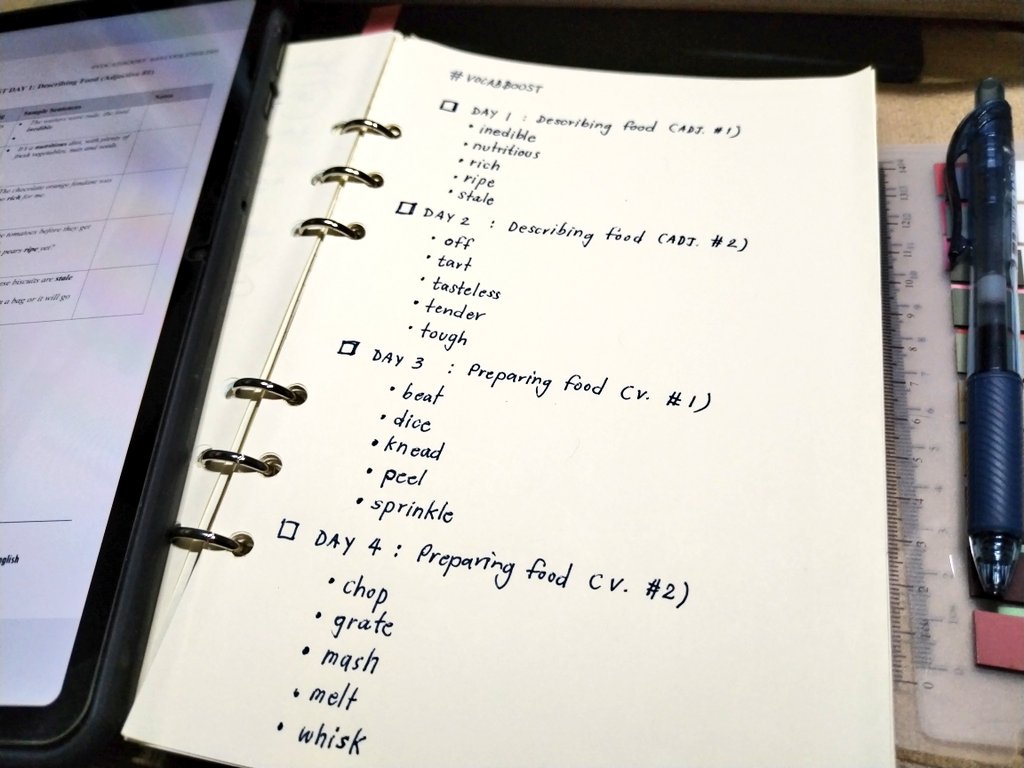 #VOCABBOOST ENGLISH
DAY 1: Describing Food (Adjective #1)
Sample Sentences
Notes
inedible
It's a nutritious diet, with plenty of
fresh vegetables, nuts and seeds.
The chocolate orange fondant was
rich for me.
tomatoes before they get
pears ripe yet?
biscuits are stale
a bag or it will go
nglish
# VOCABBOOST
DAY 1 : Describing food (ADJ. #1)
• inedible
• nutritious
• rich
• ripe
• stale
DAY 2 : Describing food (ADJ. #2)
• off
• tart
• tasteless
• tender
• tough
DAY 3 : Preparing food (V. #1)
• beat
• dice
• knead
• peel
• sprinkle
DAY 4 : Preparing food (V. #2)
• chop
• grate
• mash
• melt
• whisk